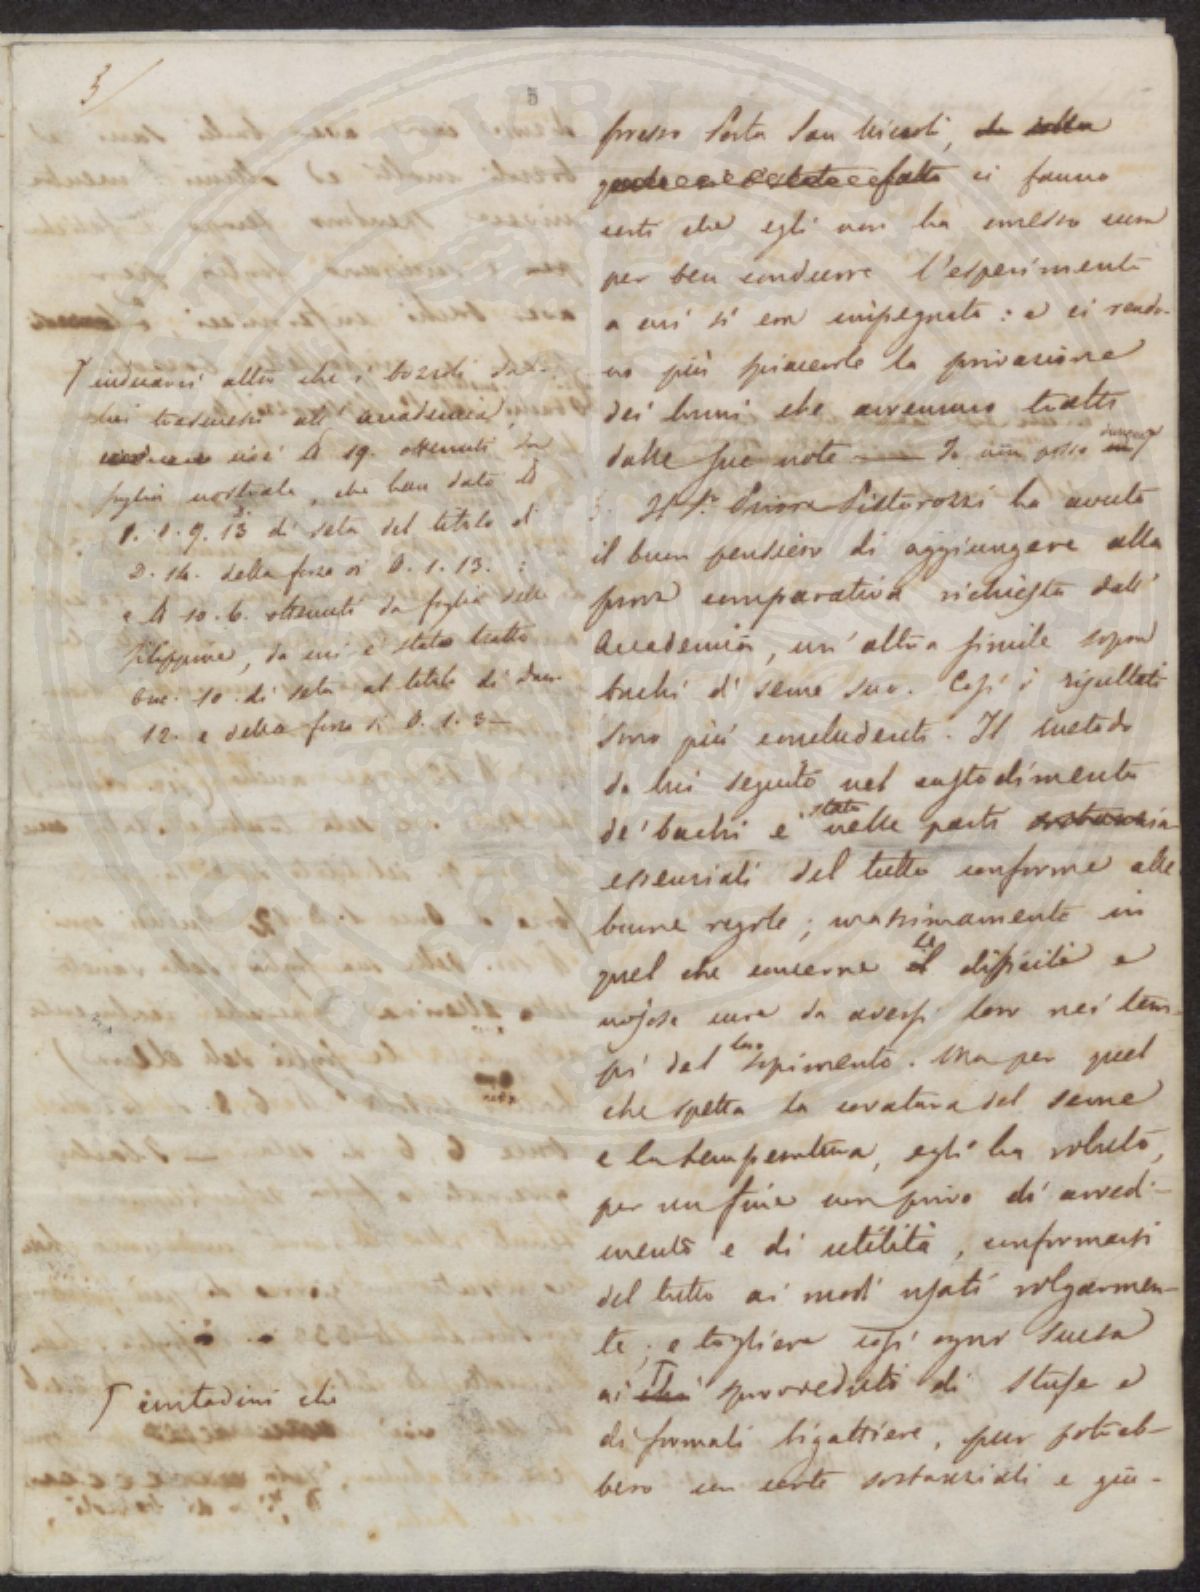 3
5
presso Porta San Niccolò, da solla
quale si è stato fatto ci fanno
certi che egli non ha omesso cura
per ben condurre l'esperimento
a cui si era impegnato: e ci rendo-
no più spiacente la privazione
dei lumi che avremmo tratti
dalle sue note — Io non posso dunque
Il Sr. Priore Pistorozzi ha avuto
il buon pensiero di aggiungere alla
prova comparativa richiesta dall'
Accademia, un'altra simile sopra
bachi di seme suo. Così i risultati
sono più concludenti. Il metodo
da lui seguito nel custodimento
de' bachi è stato nelle parti sostanzia
essenziali del tutto conforme alle
buone regole; massimamente in
quel che concerne il la difficile e
nojosa cura da aversi loro nei tem-
pi del loro sopimento. Ma per quel
che spetta la covatura del seme
e la temperatura, egli ha voluto,
per un fine non privo di avvedi-
mento e di utilità, conformarsi
del tutto ai modi usati volgarmen-
te; e togliere così ogni scusa
ai che sprovveduti di stufe e
di formali bigattiere, pur potreb-
bero con certe sostanziali e giu-
indicarvi altro che i bozzoli da
lui trasmessi all'accademia,
cioè ℔ 19. ottenuti da
foglia nostrale, che han dato ℔
1. 1. 9. 13 di seta del titolo di
D. 14. della forza di D. 1. 13. :
e ℔ 10. 6. ottenuti da foglia delle
filippine, da cui è stato tratto
Onc. 10. di seta al titolo di dan.
12. e della forza di D. 1. 3 —
contadini che